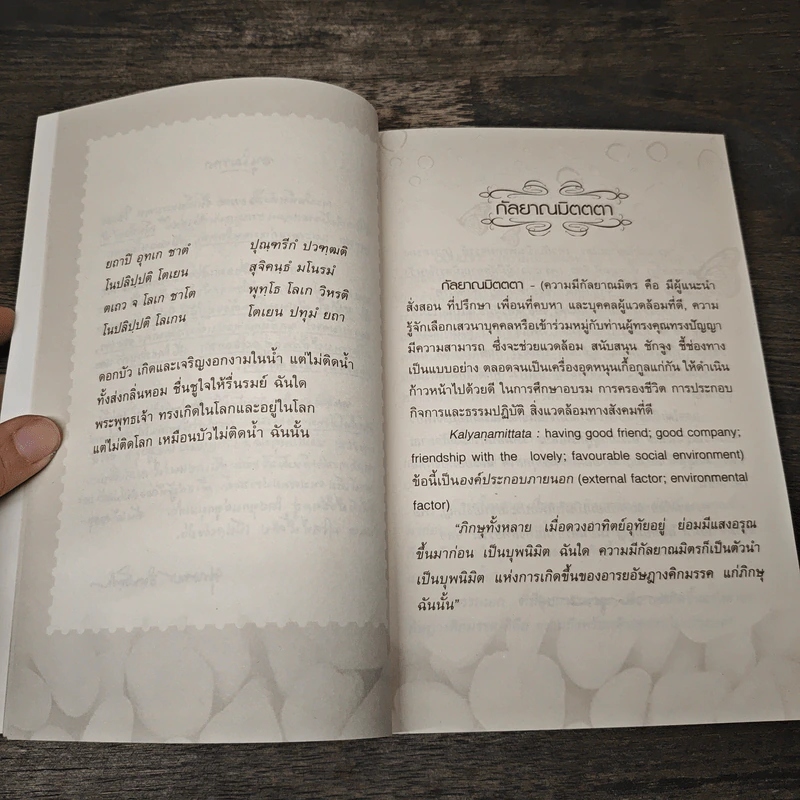 ยถาปิ อุทเก ชาตํ ปุณฺฑรีกํ ปวฑฺฒติ
โนปลิปฺปติ โตเยน สุจิคนฺธํ มโนรมํ
ตเถว จ โลเก ชาโต พุทฺโธ โลเก วิหรติ
โนปลิปฺปติ โลเกน โตเยน ปทุมํ ยถา
ดอกบัว เกิดและเจริญงอกงามในน้ำ แต่ไม่ติดน้ำ
ทั้งส่งกลิ่นหอม ชื่นชูใจให้รื่นรมย์ ฉันใด
พระพุทธเจ้า ทรงเกิดในโลกและอยู่ในโลก
แต่ไม่ติดโลก เหมือนบัวไม่ติดน้ำ ฉันนั้น
กัลยาณมิตตตา
กัลยาณมิตตตา - (ความมีกัลยาณมิตร คือ มีผู้แนะนำ
สั่งสอน ที่ปรึกษา เพื่อนที่คบหา และบุคคลผู้แวดล้อมที่ดี, ความ
รู้จักเลือกเสวนาบุคคลหรือเข้าร่วมหมู่กับท่านผู้ทรงคุณทรงปัญญา
มีความสามารถ ซึ่งจะช่วยแวดล้อม สนับสนุน ชักจูง ชี้ช่องทาง
เป็นแบบอย่าง ตลอดจนเป็นเครื่องอุดหนุนเกื้อกูลแก่กัน ให้ดำเนิน
ก้าวหน้าไปด้วยดี ในการศึกษาอบรม การครองชีวิต การประกอบ
กิจการและธรรมปฏิบัติ สิ่งแวดล้อมทางสังคมที่ดี
Kalyaṇamittata : having good friend; good company;
friendship with the lovely; favourable social environment)
ข้อนี้เป็นองค์ประกอบภายนอก (external factor; environmental
factor)
“ภิกษุทั้งหลาย เมื่อดวงอาทิตย์อุทัยอยู่ ย่อมมีแสงอรุณ
ขึ้นมาก่อน เป็นบุพนิมิต ฉันใด ความมีกัลยาณมิตรก็เป็นตัวนำ
เป็นบุพนิมิต แห่งการเกิดขึ้นของอารยอัษฎางคิกมรรค แก่ภิกษุ
ฉันนั้น”